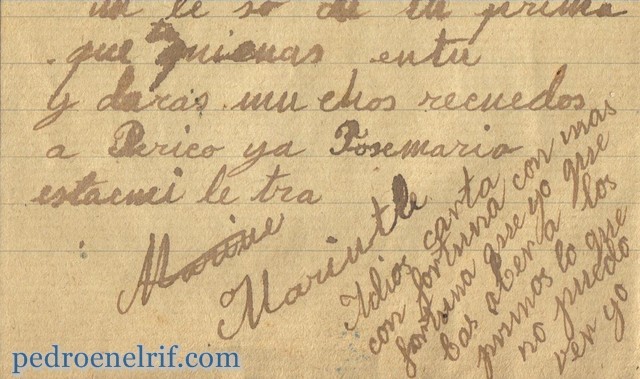 un le so de tu prima
que quienas entu
y daras muchos recuedos
a Perico ya Posemario
estaemi le tra
Marine
Marintle
Adios carta
con fortuna con mas
fortuna que yo que
bas aber a los
primos lo que
no puedo
ver yo
pedroenelrif.com